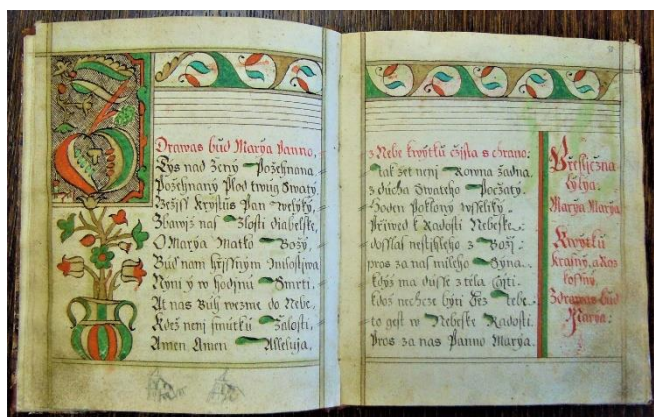 Zdrawas bud Marya Panno,
Gys nad Zeny Pożehnana.
Pożehnany Plod twüg Swaty
Gežiss Krystus Pan welyky,
Zbawiż nas Zlosti diabelske,
O Marya Matko Boży
Bud nam hřissnym milostiwa
Nyni y w hodinu Smrti.
At nas Buh wezme do Nebe,
Kdeż neni smutku Żalosti,
Amen Amen Alleluja.
z Nebe kwytku czysta s chrano:
tak żet neni Rowna żadna,
z ducha Swateho Poczaty.
hoden Poklony wsseliky.
Přiwed k Radosti Nebeske.
dosslas nestihleho z Bozi
pros za nas mileho Syna.
kdyż ma dusse z tela
kdoż nechcze byti bez tebe
to gest w Nebeske Radosti.
Pros za nas Panno Marya.
lylya.
Marya Marya
Kwytku
krasny, a Roz
kossny,
Zdrawas bud
Marya.